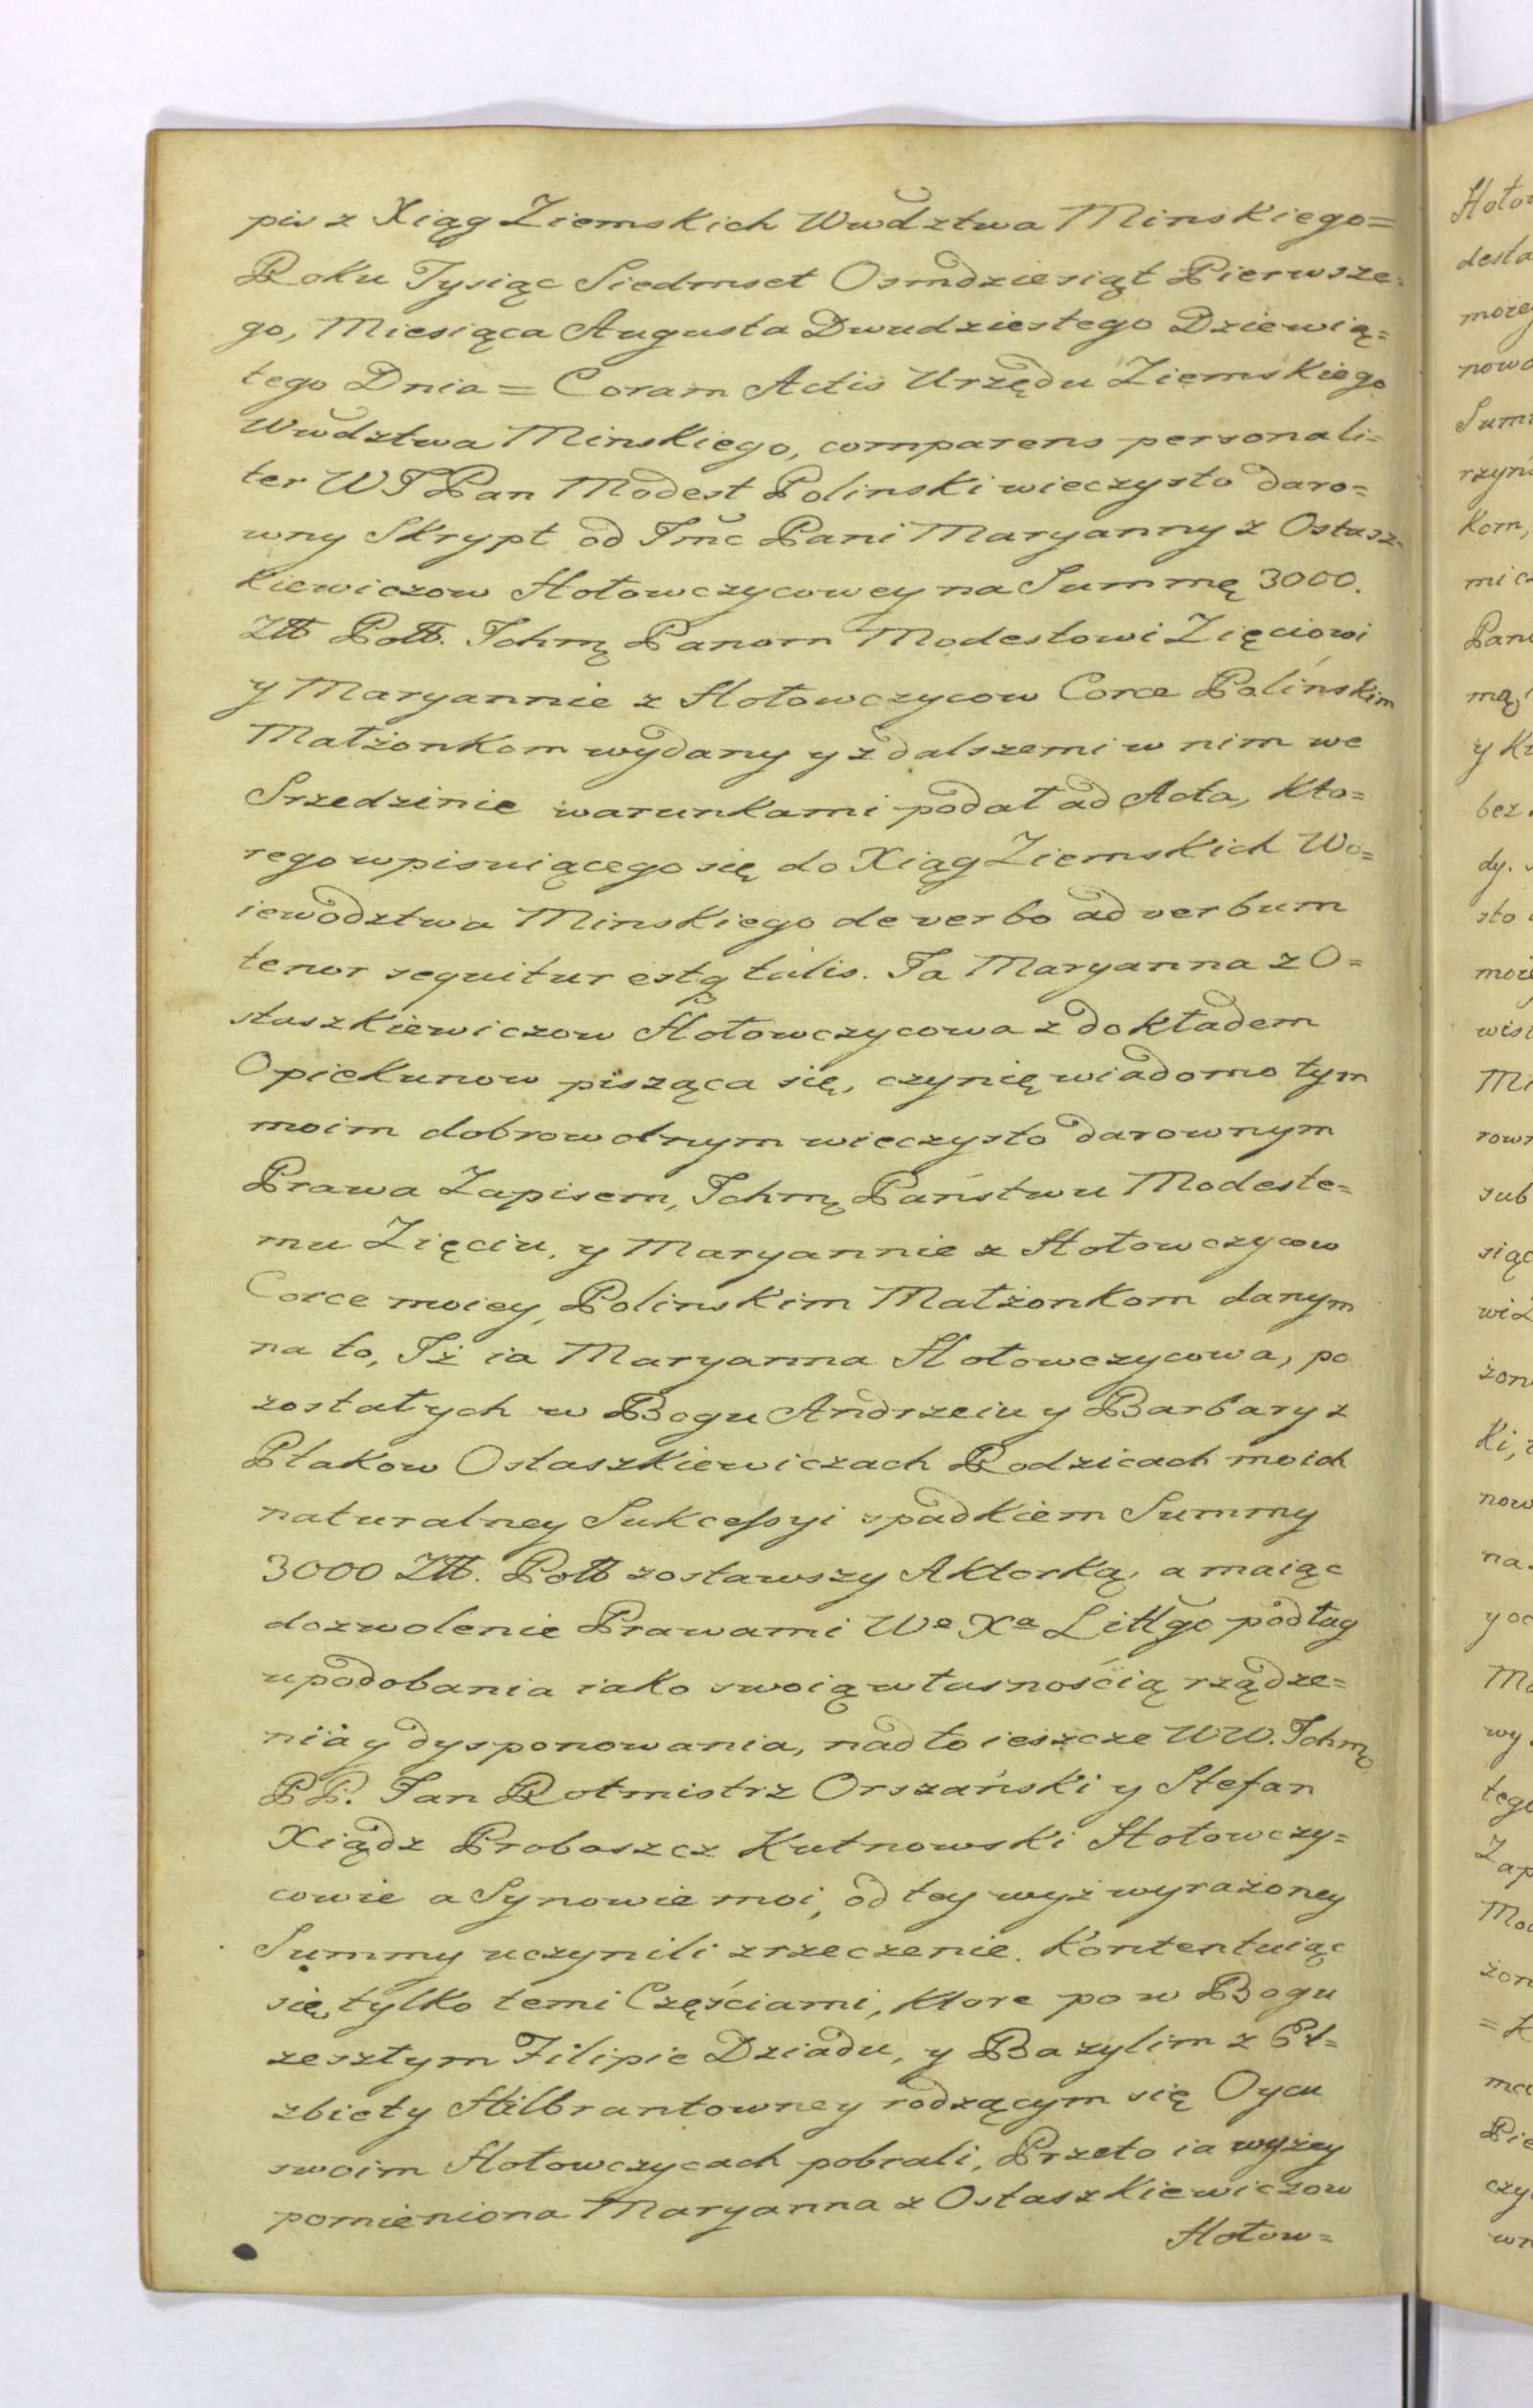 pis z Xiąg Ziemskich Wwdztwa Minskiego=
Roku Tysiąc Siedmset Osmdziesiąt Pierwsze=
go, Miesiąca Augusta Dwudziestego Dziewią=
tego Dnia = Coram Actis Urzędu Ziemskiego
Wwdztwa Minskiego, comparens personali=
ter WJPan Modest Polinski wieczysto daro=
wny Skrypt od Jmć Pani Maryanny z Ostasz=
kiewiczow Hołowczycowey na Summę 3000.
Złł Poll. Ichmę Panom Modestowi Zięciowi
y Maryannie z Hołowczycow Corce Polińskim
Małżonkom wydany y z dalszemi w nim we
Srzedzinie warunkami podał ad Acta, Kto=
rego wpisuiącego się do Xiąg Ziemskich Wo=
iewodztwa Minskiego de verbo ad verbum
tenor sequitur estq talis. Ja Maryanna z O=
staszkiewiczow Hołowczycowa z dokładem
Opiekunow pisząca się, czynię wiadomo tym
moim dobrowolnym wieczysto darownym
Prawa Zapisem, Ichmę Państwu Modeste=
mu Zięciu, y Maryannie z Hołowczycow
Corce moiey, Polinskim Małżonkom danym
na to, Iż ia Maryanna Hołowczycowa, po
zostałych w Bogu Andrzeiu y Barbary z
Ptakow Ostaszkiewiczach Rodzicach moich
naturalney Sukcessyi spadkiem Summy
3000 Złł. Poll zostawszy Aktorką, a maiąc
dozwolenie Prawami Wo Xa Littgo podług
upodobania iako swoią własnością rządze=
nia y dysponowania, nadto ieszcze WW. Ichmę
PP. Jan Rotmistrz Orszański y Stefan
Xiądz Proboszcz Kutnowski Hołowczy=
cowie a Synowie moi, od tey wyż wyrażoney
Summy uczynili zrzeczenie. Kontentuiąc
się tylko temi Częściami, Ktore po w Bogu
zeszłym Filipie Dziadu, y Bazylim z El=
zbiety Hilbrantowney rodzącym się Oycu
swoim Hołowczycach pobrali, Przeto ia wyżey
pomieniona Maryanna z Ostaszkiewiczow
Hołow=